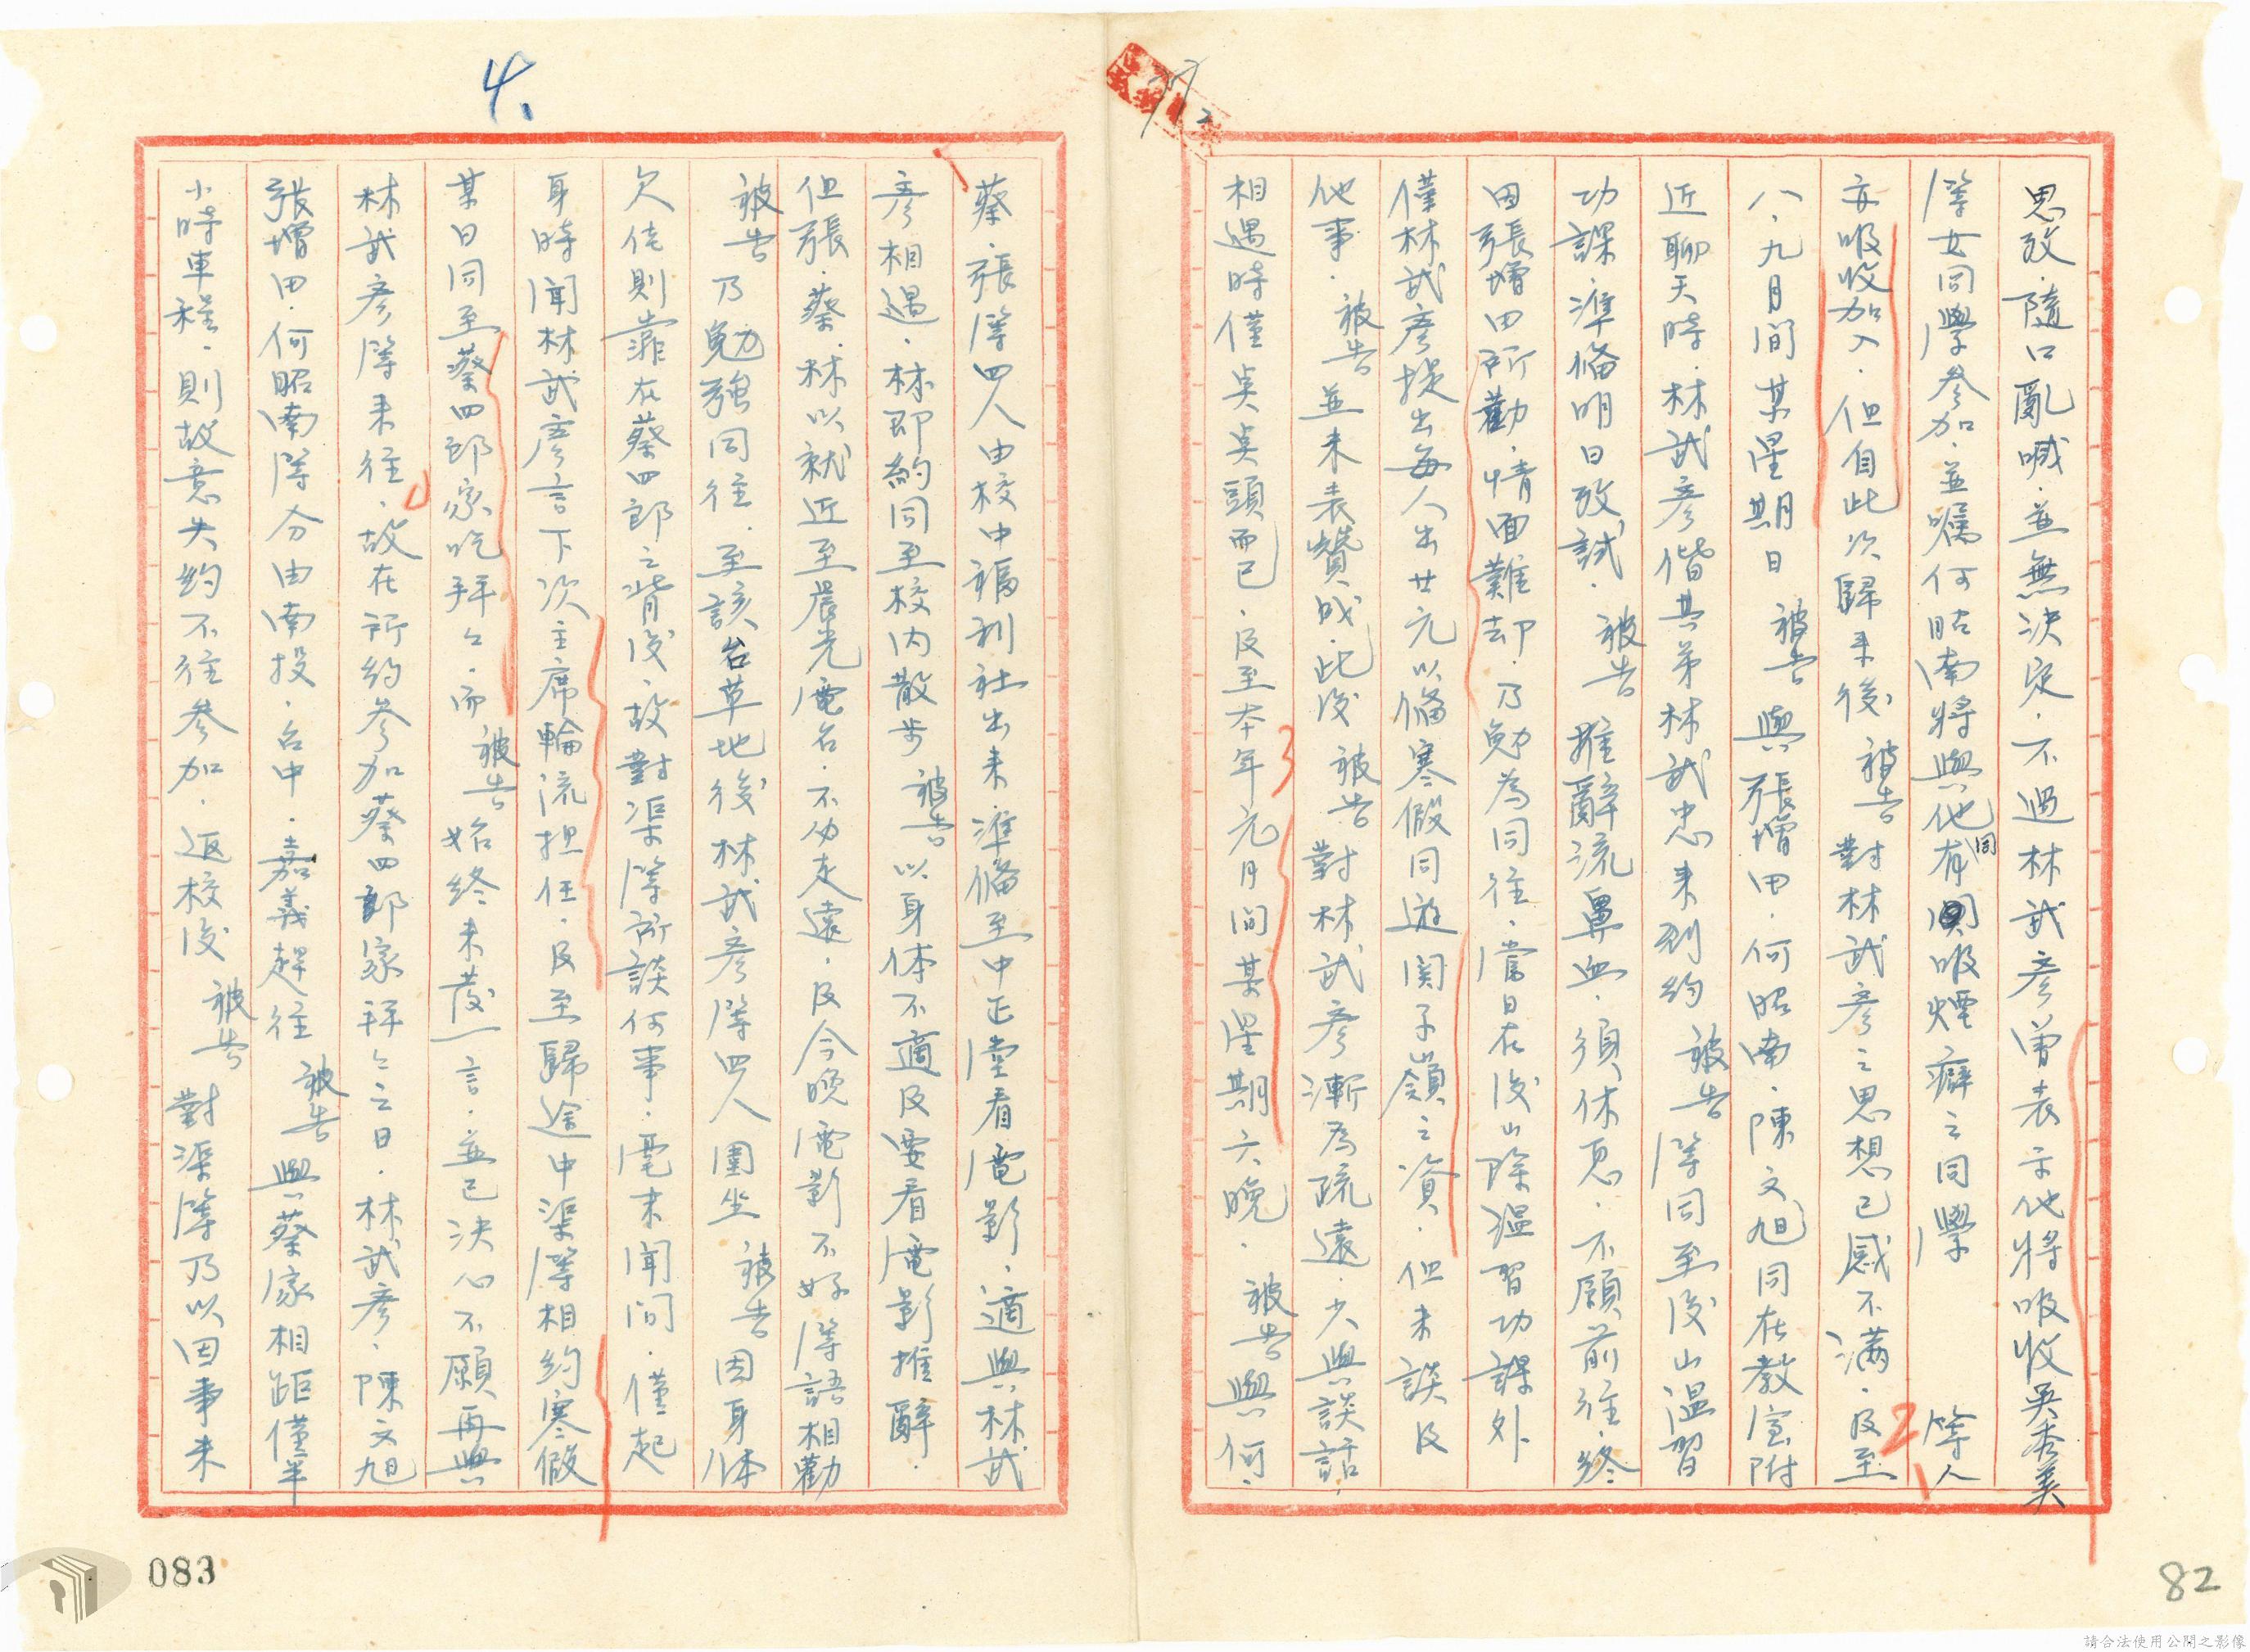 思攷．隨口亂喊．並無決定．不過林武彥曾表示他將吸收吳秀美
等女同學參加．並囑何昭南將與他有同吸煙癖之同學　等人
亦吸收加入．但自此次歸來後 被告 對林武彥之思想已感不滿．及至
八．九月間某星期日 被告 與張增田．何昭南．陳文旭同在教室附
近聊天時．林武彥偕其弟林武忠來到約 被告 等同至後山溫習
功課．準備明日攷試． 被告 推辭流鼻血．須休息．不願前往．終
因張增田所勸．情面難却．乃勉為同往．當日在後山除溫習功課外
僅林武彥提出每人出廿元以備寒假同遊関子嶺之資．但未談及
他事． 被告 並未表贊成．此後 被告 對林武彥漸為疏遠．少與談話．
相遇時僅點點頭而已．及至本年元月間某星期六晚． 被告 與何．
蔡．張等四人由校中福利社出來．準備至中正堂看電影．適與林武
彥相遇．林即約同至校內散步 被告 以身体不適及要看電影推辭．
但張．蔡．林以就近至晨光電台．不必走遠．及今晚電影不好等語相勸
被告 乃勉強同往．至該台草地後林武彥等四人圍坐 被告 因身体
欠佳則靠在蔡四郎之背後．故對渠等所談何事．毫未聞問．僅起
身時聞林武彥言下次主席輪流担任．及至歸途中渠等相約寒假
某日同至蔡四郎家吃拜々．而 被告 始終未發一言．並已決心不願再與
林武彥等來往．故在所約參加蔡四郎家拜々之日．林武彥．陳文旭
張增田．何昭南等分由南投．台中．嘉義趕往 被告 與蔡家相距僅半
小時車程．則故意失約不往參加．返校後 被告 對渠等乃以因事未
4、
083
82
請合法使用公開之影像